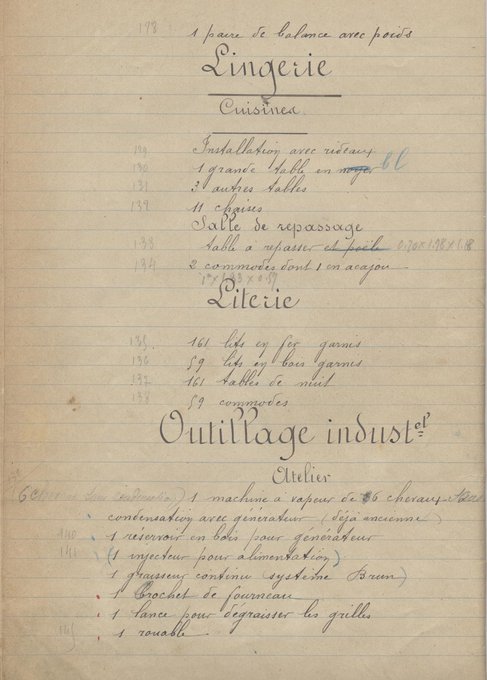 128 1 paire de balance avec poids
Lingerie
Cuisines
129 Installation avec rideaux
130 1 grande table en noyer bl
131 3 autres tables
132 11 chaises
Salle de repassage
133 table à repasser et poêle 0.70 x 1.98 x 1.18
134 2 commodes dont 1 en acajou
135 161 lits en fer garnis
Literie
136 59 lits en bois garnis
137 161 tables de nuit
138 59 commodes
Outillage indust.el
Atelier
1 machine à vapeur de 6 chevaux
condensation avec générateur (déjà ancienne)
140 1 réservoir en bois pour générateur
141 (1 injecteur pour alimentation)
1 graisseur continu système Brun)
1 crochet de fourneau
1 lance pour dégraisser les grilles
145 1 rouable